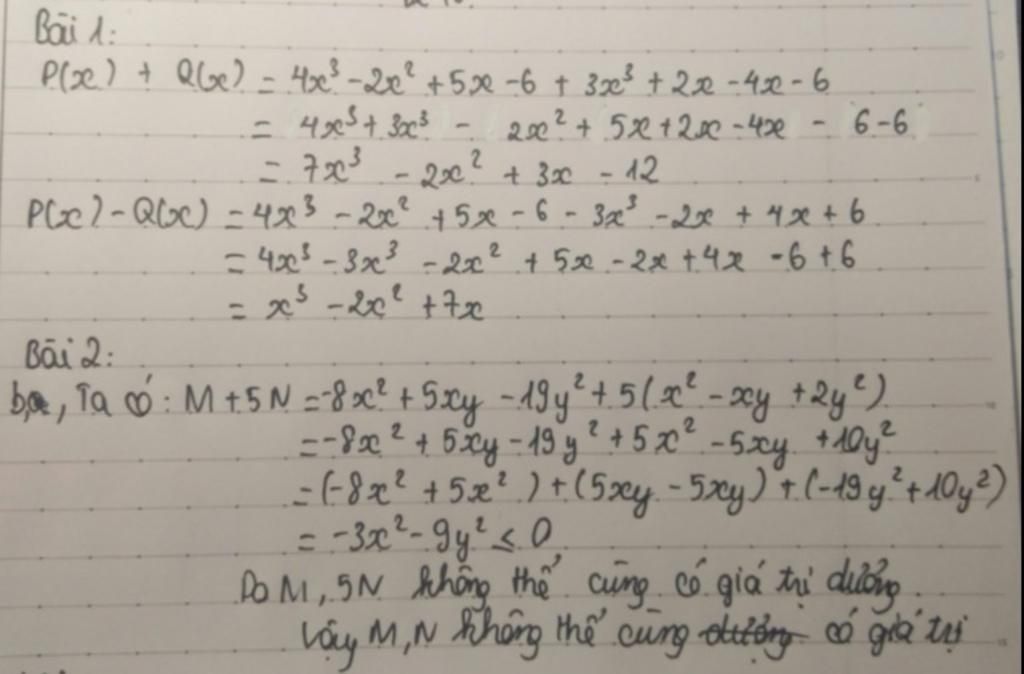 Bài 1:
P(x) + Q(x) = 4x³ - 2x² + 5x - 6 + 3x³ + 2x - 4x - 6
= 4x³ + 3x³ - 2x² + 5x + 2x - 4x - 6 - 6
= 7x³ - 2x² + 3x - 12
P(x) - Q(x) = 4x³ - 2x² + 5x - 6 - 3x³ - 2x + 4x + 6
= 4x³ - 3x³ - 2x² + 5x - 2x + 4x - 6 + 6
= x³ - 2x² + 7x
Bài 2:
b, Ta có: M + 5N = -8x² + 5xy - 19y² + 5(x² - xy + 2y²)
= -8x² + 5xy - 19y² + 5x² - 5xy + 10y²
= (-8x² + 5x²) + (5xy - 5xy) + (-19y² + 10y²)
= -3x² - 9y² ≤ 0
Do M, 5N không thể cùng có giá trị dương.
Vậy M, N không thể cùng dương có giá trị